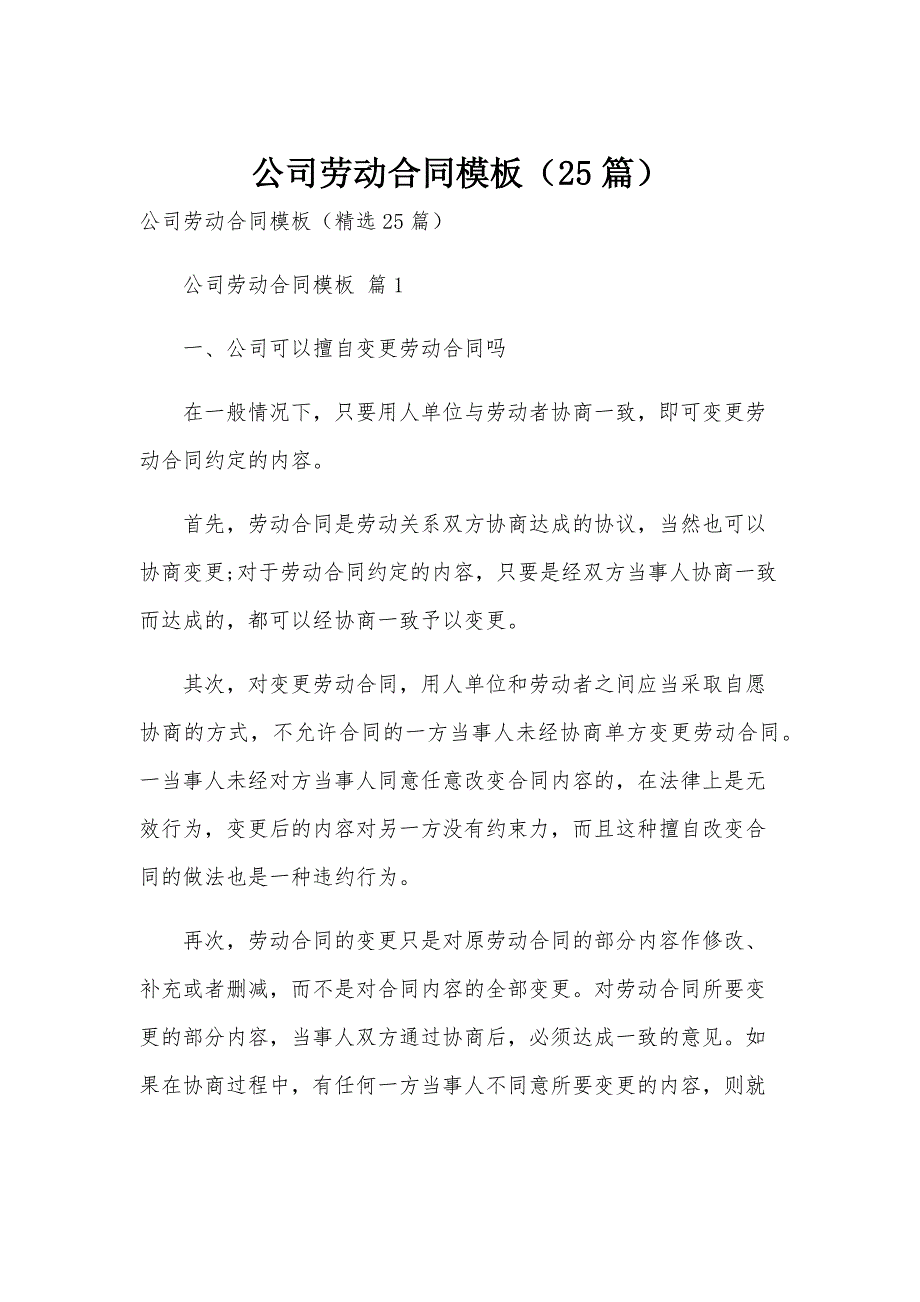 公司劳动合同模板（25 篇）
公司劳动合同模板（精选 25 篇）
公司劳动合同模板 篇 1
一、公司可以擅自变更劳动合同吗
在一般情况下，只要用人单位与劳动者协商一致，即可变更劳
动合同约定的内容。
首先，劳动合同是劳动关系双方协商达成的协议，当然也可以
协商变更;对于劳动合同约定的内容，只要是经双方当事人协商一致
而达成的，都可以经协商一致予以变更。
其次，对变更劳动合同，用人单位和劳动者之间应当采取自愿
协商的方式，不允许合同的一方当事人未经协商单方变更劳动合同。
一当事人未经对方当事人同意任意改变合同内容的，在法律上是无
效行为，变更后的内容对另一方没有约束力，而且这种擅自改变合
同的做法也是一种违约行为。
再次，劳动合同的变更只是对原劳动合同的部分内容作修改、
补充或者删减，而不是对合同内容的全部变更。对劳动合同所要变
更的部分内容，当事人双方通过协商后，必须达成一致的意见。如
果在协商过程中，有任何一方当事人不同意所要变更的内容，则就